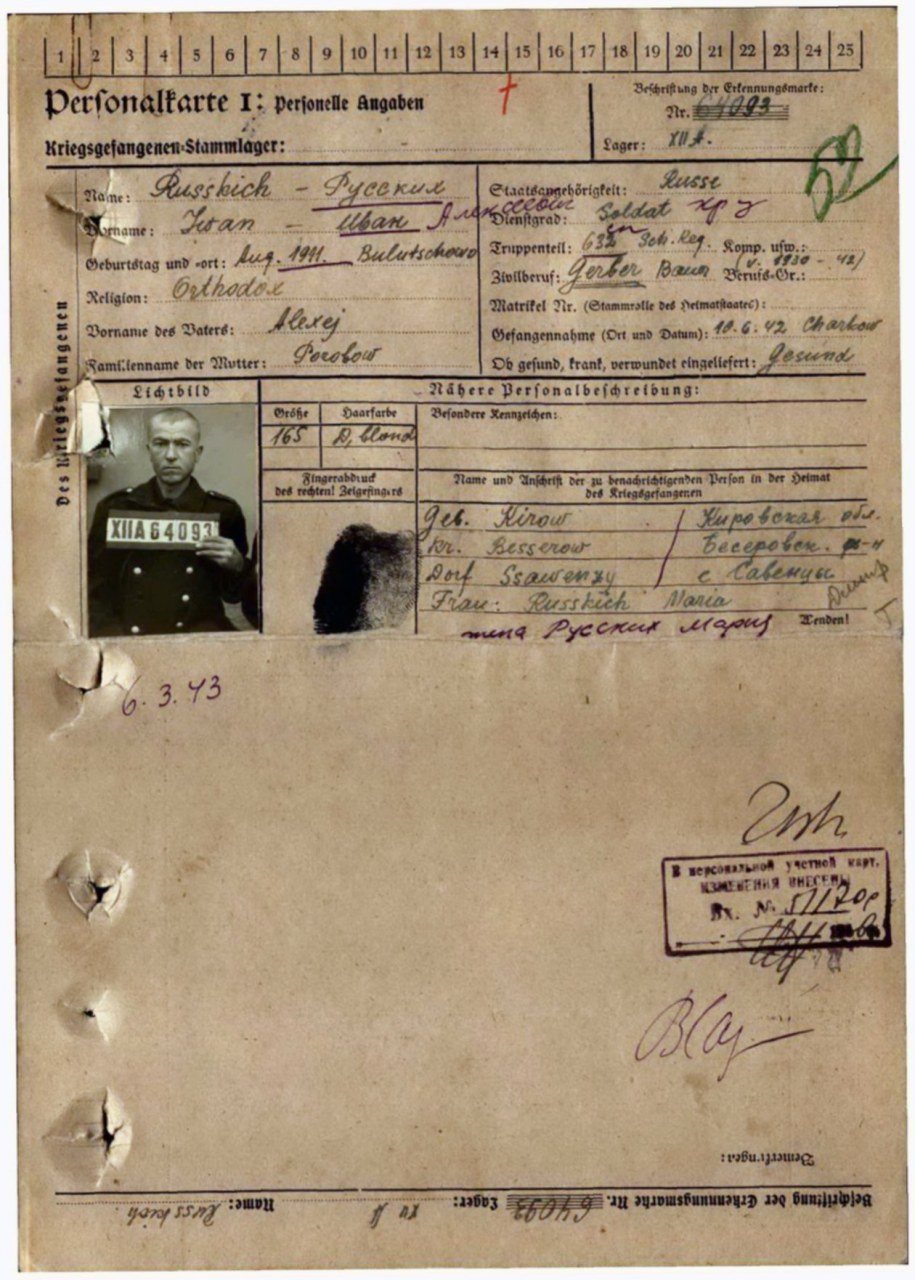 1 2 3 4 5 6 7 8 9 10 11 12 13 14 15 16 17 18 19 20 21 22 23 24 25
Personalkarte I: Personelle Angaben
Kriegsgefangenen-Stammlager:
Beschriftung der Erkennungsmarke:
Nr. 64093
Lager: XII A.
52
Des Kriegsgefangenen
Name: Russkich – Русских
Vorname: Iwan – Иван
Geburtstag und -ort: Aug. 1911.
Religion: Orthodox
Vorname des Vaters: Alexej
Familienname der Mutter: Porobow
Staatsangehörigkeit: Russe
Dienstgrad: Soldat
Truppenteil: 632 Sch. Reg. Komp. usw.:
Zivilberuf: Gerber Berufs-Gr.:
Matrikel Nr. (Stammrolle des Heimatstaates):
Gefangennahme (Ort und Datum): 10.6.42 Charkow
Ob gesund, krank, verwundet eingeliefert: Gesund
Lichtbild
Nähere Personalbeschreibung:
Größe Haarfarbe Besondere Kennzeichen:
165 D, blond
Fingerabdruck
des rechten! Zeigefingers
Name und Anschrift der zu benachrichtigenden Person in der Heimat
des Kriegsgefangenen
XIIA 64093
Geb. Kirow / Кировская обл.
Kr. Besserow Бесеровск. р-н
Dorf Ssawenzy с Савенцы
Frau: Russkich Maria
жена Русских Мария
Wenden!
6.3.43
В персональной учетной карт.
ИЗМЕНЕНИЯ ВНЕСЕНЫ
Вх. №
Bemerkungen:
Beschriftung der Erkennungsmarke Nr. 64093 Lager: XII A Name: Russkich